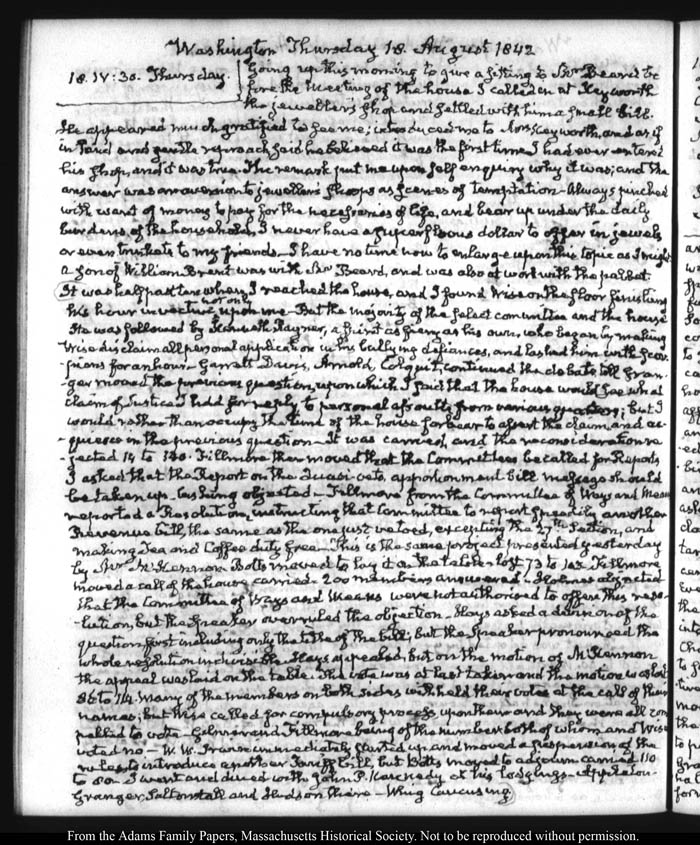 Washington Thursday 18. August 1842
18. IV:30. Thursday.
Going up this morning to give a sitting to Mr Beard be
fore the meeting of the house I called in at Keyworth
the jeweller's shop and settled with him a small bill.
He appeared much gratified to see me; introduced me to Mrs Keyworth, and as if
in kind and gentle reproach said he believed it was the first time I had ever entered
his shop, and it was true. The remark put me upon self enquiry why it was; and the
answer was an aversion to jewellers shops as scenes of temptation. Always pinched
with want of money to pay for the necessaries of life, and bear up under the daily
burdens of the household, I never have a superfluous dollar to offer in jewels
or even trinkets to my friends. I have no time now to enlarge upon this topic as I might
a son of William Brent was with Mr Beard, and was also at work with the pallet
It was half past ten when I reached the house, and I found Wise on the floor finishing
his hour invective not only upon me – But the majority of the select committee and the house
He was followed by Kenneth Rayner, a spirit as fiery as his own, who began by making
Wise disclaim all personal application in his bullying defiances, and lashed him with scor-
pions for an hour – Garrett Davis, Arnold, Colquit, continued the debate till Gran-
ger moved the previous question, upon which I said that the house would see what
claim of Justice I had for reply to personal assaults from various quarters; but I
would rather than occupy the time of the house forbear to assert the claim, and ac-
-quiesce in the previous question – It was carried, and the reconsideration re
-jected 14 to 140. Fillmore then moved that the Committees be called for Reports
I asked that the Report on the Quasi-veto, apportionment bill message should
be taken up. Cushing objected – Fillmore from the Committee of Ways and Means
reported a Resolution, instructing that Committee to report speedily another
Revenue bill, the same as the one just vetoed, excepting the 27th Section, and
making Tea and Coffee duty free – This is the same project presented yesterday
by Mr McKennon. Botts moved to lay it on the table – lost 73 to 108. Fillmore
moved a call of the house carried – 200 members answered – Holmes objected
that the Committee of Ways and Means were not authorised to offer this reso-
-lution, but the Speaker overruled the objection. Hays asked a division of the
question first including only the title of the bill; but the Speaker pronounced the
whole resolution indivisible. Hays appealed, but on the motion of McKennon
the appeal was laid on the table. The vote was at last taken and the motion was lost
86 to 114. Many of the members on both sides withheld their votes at the call of their
names; but Wise called for compulsory process upon them and they were all com
pelled to vote – Gilmer and Fillmore being of the number both of whom and Wise
voted no – W. W. Irwin immediately started up and moved a suspension of the
rules to introduce another Tariff bill, but Botts moved to adjourn carried 110
to 80. I went and dined with John P. Kennedy at his lodgings – Appleton
Granger, Saltonstall and Hudson there – Whig Caucusing
From the Adams Family Papers, Massachusetts Historical Society. Not to be reproduced without permission.